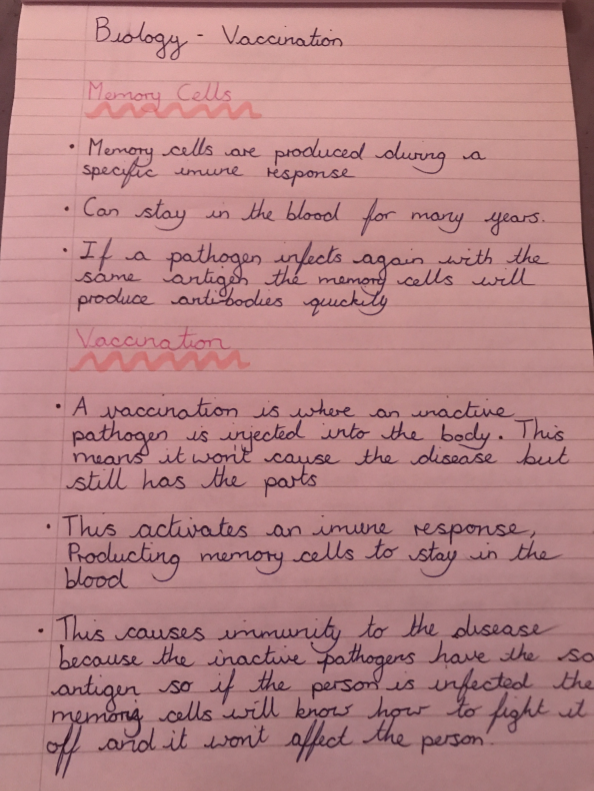 Biology - Vaccination
Memory Cells
• Memory cells are produced during a
specific imune response
• Can stay in the blood for many years.
• If a pathogen infects again with the
same antigen the memory cells will
produce antibodies quickily
Vaccination
• A vaccination is where an inactive
pathogen is injected into the body. This
means it won't cause the disease but
still has the parts
• This activates an imune response,
Producting memory cells to stay in the
blood
• This causes immunity to the disease
because the inactive pathogens have the
antigen so if the person is infected the
memory cells will know how to fight it
off and it won't affect the person.